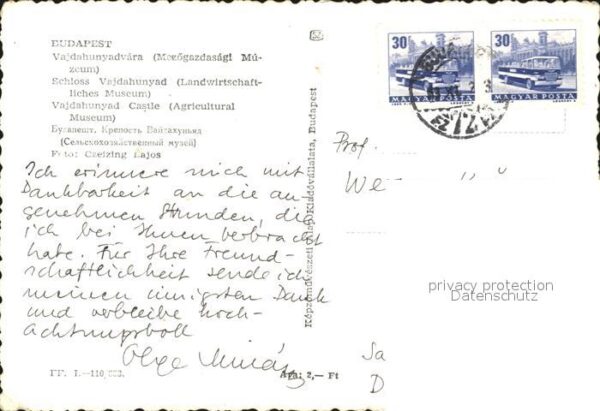 BUDAPEST
Vajdahunyadvára (Mezőgazdasági Mú-
zeum)
Schloss Vajdahunyad (Landwirtschaft-
liches Museum)
Vajdahunyad Castle (Agricultural
Museum)
Будапешт, Крепость Вайдахуньяд
(Сельскохозяйственный музей)
Foto: Czeizing Lajos
Ich erinnere mich mit
Dankbarkeit an die an-
genehmen Stunden, die
ich bei Ihnen verbracht
habe. Für Ihre Freund-
schaftlichkeit sende ich
meinen innigsten Dank
und verbleibe hoch-
achtungsvoll
Olga
FF. I.—110
Ára: 2,— Ft
Képzőművészeti Alap Kiadóvállalata, Budapest
30f
MAGYAR POSTA
30f
MAGYAR POSTA
Prof.
We
privacy protection
Datenschutz
Sa
D